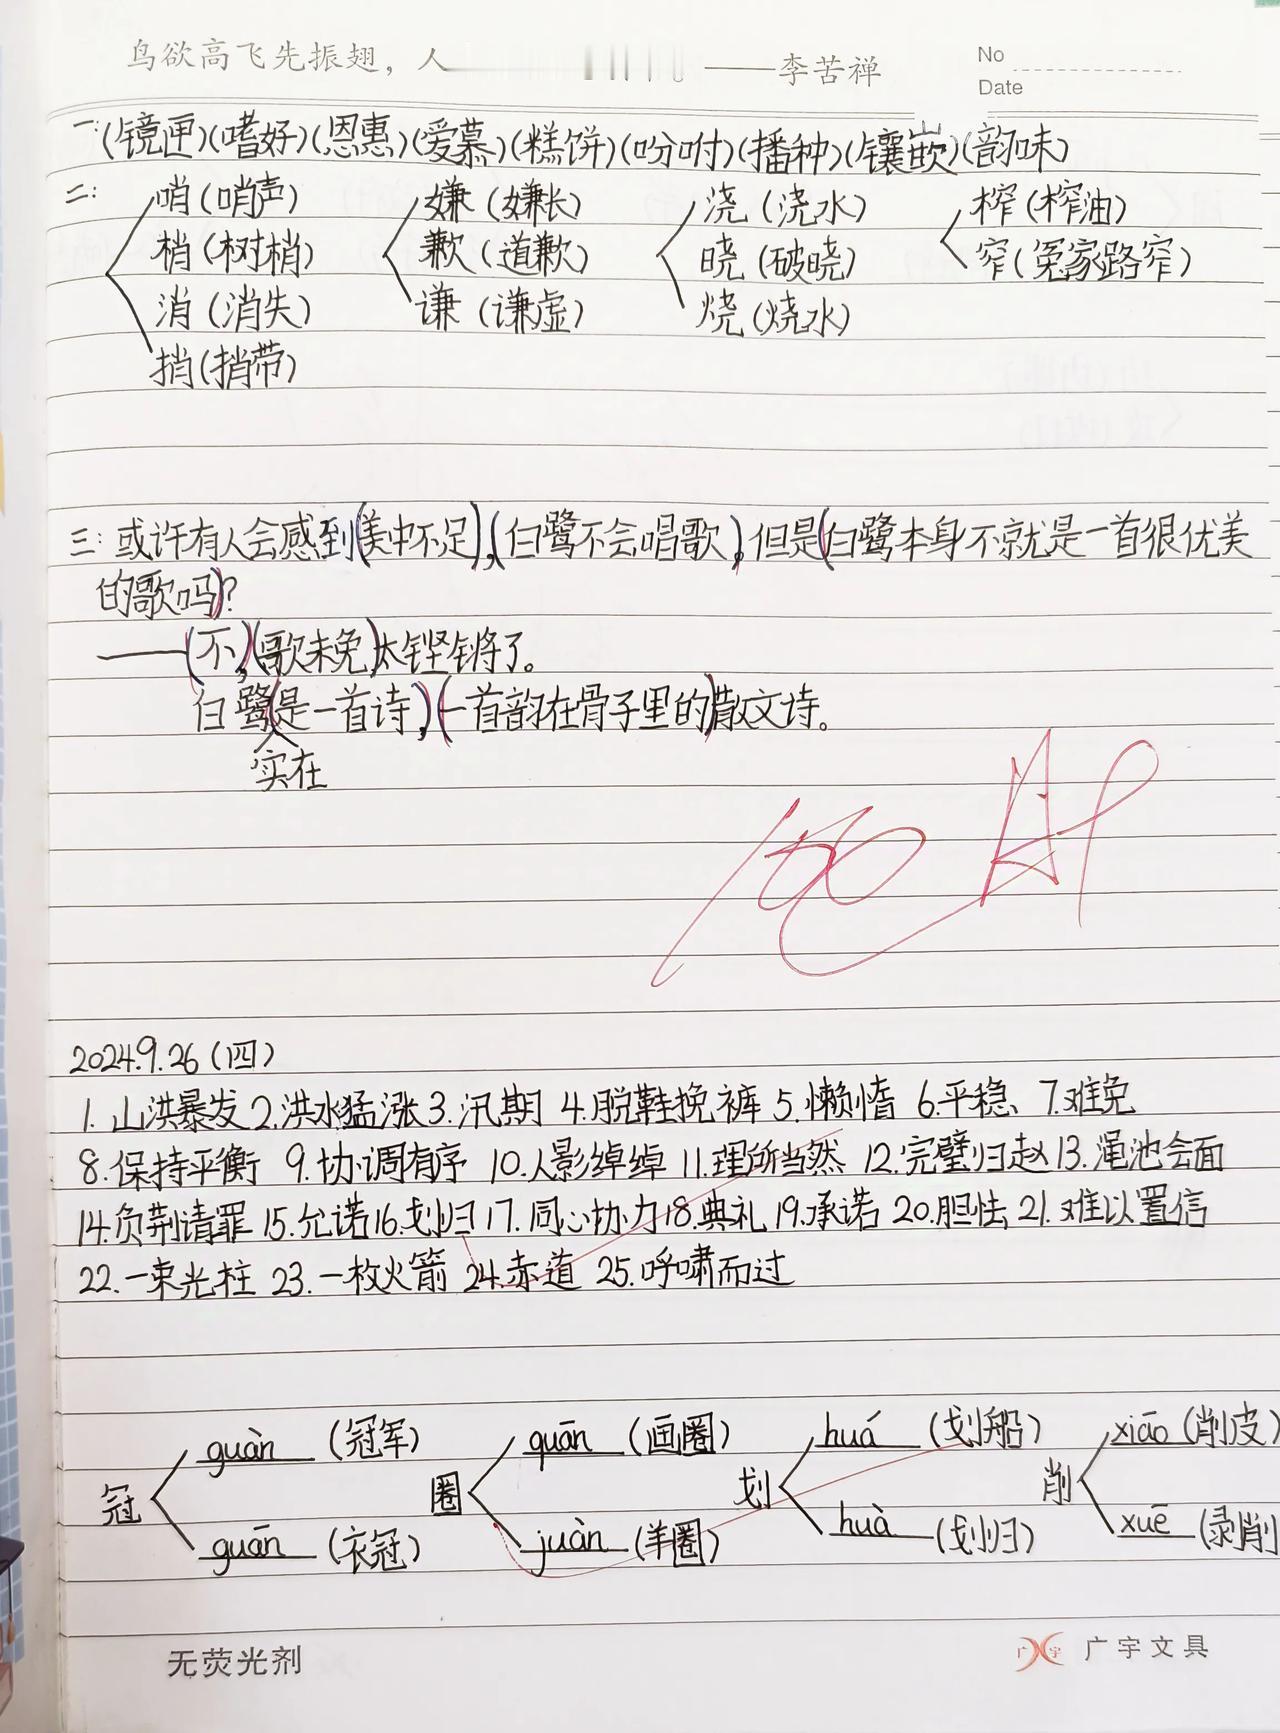 鸟欲高飞先振翅，人 ——李苦禅 No
Date
一:(镜匣)(嗜好)(恩惠)(爱慕)(糕饼)(吩咐)(播种)(镶嵌)(韵味)
二: 哨(哨声) 嫌(嫌长) 浇(浇水) 榨(榨油)
梢(树梢) 歉(道歉) 晓(破晓) 窄(冤家路窄)
消(消失) 谦(谦虚) 烧(烧水)
捎(捎带)
三:或许有人会感到(美中不足),(白鹭不会唱歌)。但是(白鹭本身不就是一首很优美
的歌吗)?
——(不,)(歌未免)太铿锵了。
白鹭(是一首诗),(一首韵在骨子里的)散文诗。
实在
100
2024.9.26(四)
1.山洪暴发 2.洪水猛涨 3.汛期 4.脱鞋挽裤 5.懒惰 6.平稳 7.难免
8.保持平衡 9.协调有序 10.人影绰绰 11.理所当然 12.完璧归赵 13.渑池会面
14.负荆请罪 15.允诺 16.划归 17.同心协力 18.典礼 19.承诺 20.胆怯 21.难以置信
22.一束光柱 23.一枚火箭 24.赤道 25.呼啸而过
guàn (冠军) quān (画圈) huá (划船) xiāo (削皮)
冠 圈 划 削
guān (衣冠) juàn (羊圈) huà (划归) xuē (剥削
无荧光剂 广宇 广宇文具